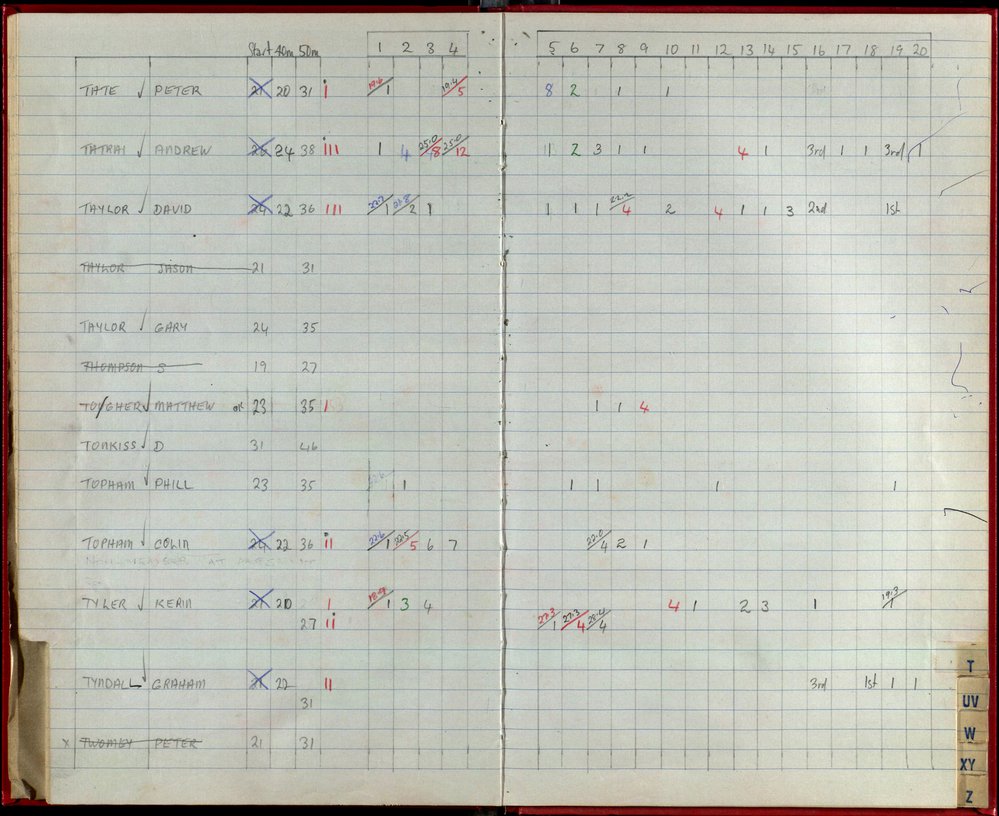 Start 40m 50m 1 2 3 4 5 6 7 8 9 10 11 12 13 14 15 16 17 18 19 20
TATE PETER 21 20 31 i 19.6/1 19.4/5 8 2 1 1
TATRAI ANDREW 26 24 38 III 1 4 25.0/8 25.0/12 1 2 3 1 1 4 1 3rd 1 1 3rd 1
TAYLOR DAVID 24 22 36 III 22.7/1 21.8/2 1 1 1 1 22.2/4 2 4 1 1 3 2nd 1st
TAYLOR JASON 21 31
TAYLOR GARY 24 35
THOMPSON S 19 27
TOUGHER MATTHEW OR 23 35 I 1 1 4
TONKISS D 31 46
TOPHAM PHILL 23 35 1 1 1 1 1
TOPHAM COLIN 24 22 36 ii 22.6/1 22.5/5 6 7 22.0/4 2 1
NON MEMBER AT PRESENT
TYLER KERIN 21 20 I 18.9/1 3 4 4 1 2 3 1 19.3/1
27 ii 27.3/1 27.3/4 28.4/4
TYNDALL GRAHAM 21 22 II 3rd 1st 1 1
31
X TWOMEY PETER 21 31
T
UV
W
XY
Z